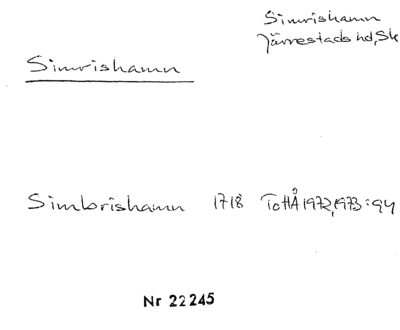 Simrishamn
Järrestads hd, Sk
Simrishamn
Simbrishamn 1718 ToHÅ 1972, 1973:94
Nr 22245